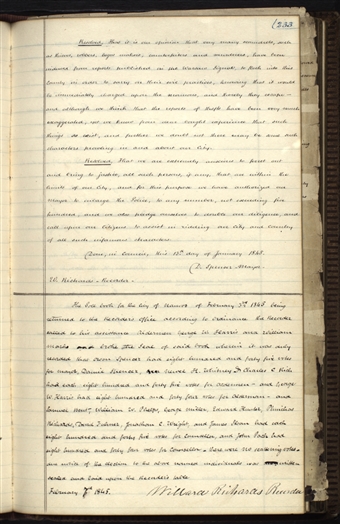 233
Resolved, that it is our opinion that very many criminals, such
as thieves, robbers, bogus makers, counterfeiters and murderers, have been
induced from reports published in the Warsaw Signal, to flock into this
County in order to carry on their evil practices, knowing that it would
be immediately charged upon the Mormons, and thereby they escape—
and although we think that the reports of thefts have been very much
exaggerated, yet we know from dear bought experience that such
things do exist, and further we doubt not there may be some such
characters prowling in and about our City.
Resolved, that we are extremely anxious to ferret out
and bring to justice, all such persons, if any, that are within the
limits of our City, and for this purpose we have authorized our
Mayor to enlarge the Police, to any number, not exceeding five
hundred, and we also pledge ourselves to double our diligence, and
call upon our citizens to assist in ridding our city and country
of all such infamous characters.
Done, in Council, this 13th day of January 1845.
D. Spencer Mayor.
W. Richards Recorder.
The Poll books for the City of Nauvoo of February 3rd 1845 being
returned to the Recorders office according to ordinance the Recorder
called to his assistance Aldermen George W. Harris and William
Marks and broke the seal of said books wherein it was duly
recorded that Orson Spencer had eight hundred and forty five votes
for mayor, Daniel Spencer, N. K. Whitney & Charles C. Rich
had each eight hundred and forty five votes for aldermen - and George
W. Harris had eight hundred and forty four votes for Alderman - and
Samuel Bent, William W. Phelps, George Miller, Edward Hunter, Phinehas
Richards, David Fullmer, Jonathan C. Wright, and James Sloan had each
eight hundred and forty five votes for Councillors, and John Pack had
eight hundred and forty four votes for Councillor. There were no scattering votes
an notice of the election to the above named individuals was
and laid upon the Recorder's table
February 7th 1845. Willard Richards Recorder